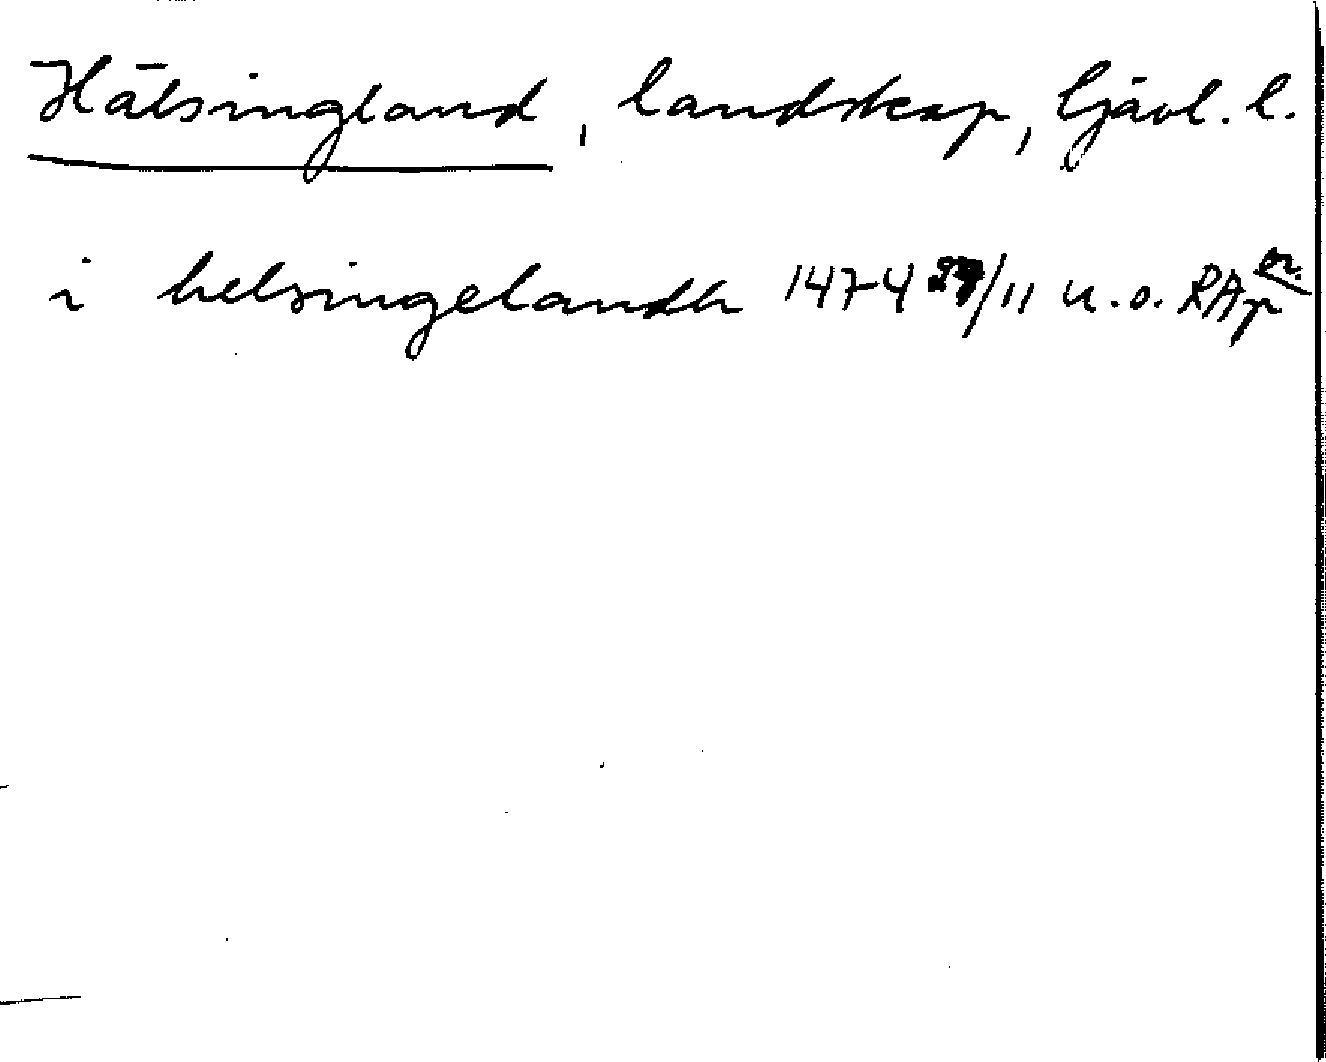 Hälsingland, landskap, Gävl. l.
i helsingelandh 1474 /11 u.o. RAp or.